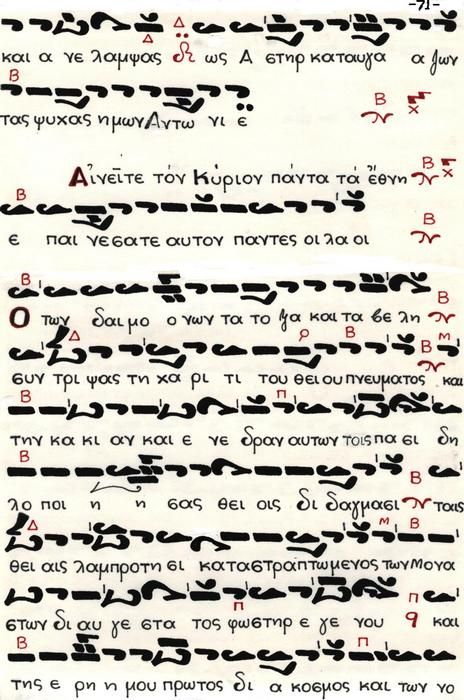 -71-
και α νε λαμψας ως Α στηρ καταυγα α ζων
τας ψυχας ημων Αντω νι ε
Αἰνεῖτε τόν Κύριον πάντα τά ἔθνη
ε παι νεσατε αυτον παντες οι λα οι
Ο των δαι μο ο νων τα το ξα και τα βε λη
συν τρι ψας τη χα ρι τι του θειου πνευματος και
την κα κι αν και ε νε δραν αυτων τοις πα σι δη
λο ποι η η σας θει οις δι δαγμασι ταις
θει αις λαμπροτη σι καταστραπτωμενος των Μονα
στων δι αυ γε στα τος φωστηρ ε γε νου και
της ε ρη η μου πρωτος δι α κοσμος και των νο